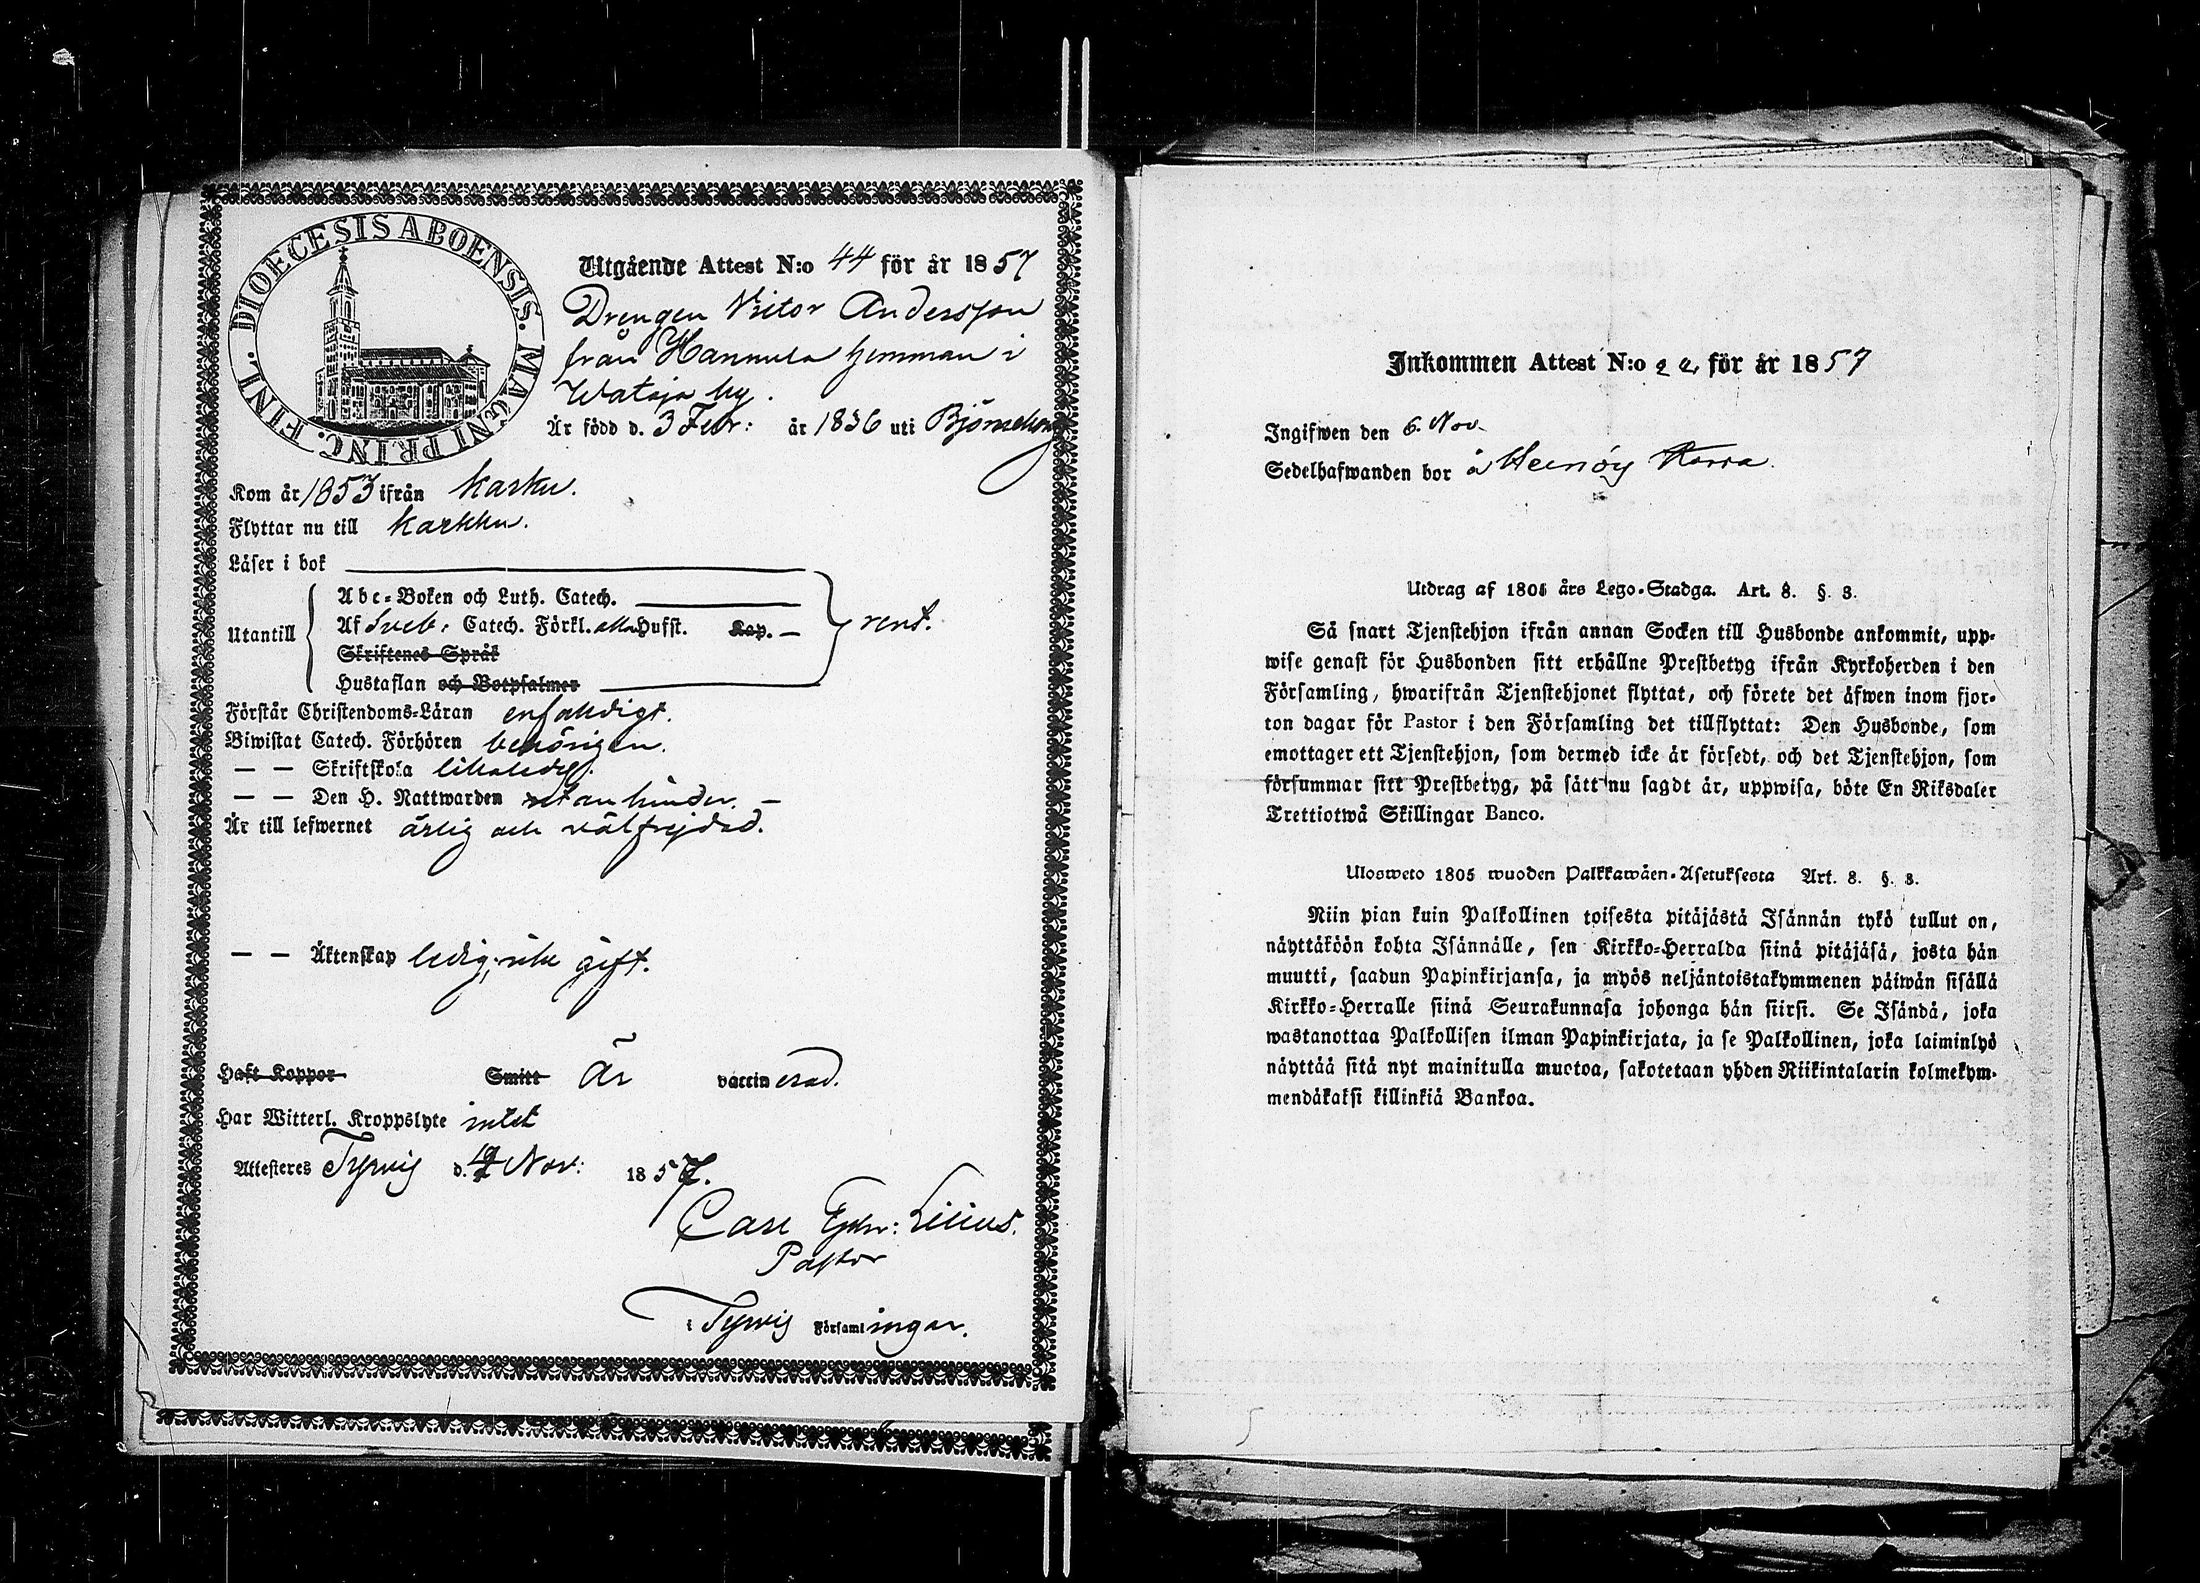 DIOECESIS ABOENSIS. MAGNI PRINC. FINL.
Utgående Attest N:o 44 för år 1857
Drengen Victor Andersson
från Hannula hemman i
Wataja by.
Är född d. 3 Febr: år 1836 uti Björneborg
Kom år 1853 ifrån Karku.
Flyttar nu till Karkku.
Läser i bok
Utantill
Abc-Boken och Luth. Catech.
Af Sveb: Catech. Förkl. alla Hufst. Kap. —
Skriftenes Språk
Hustaflan och Botpsalmer
rent.
Förstår Christendoms-Läran enfaldigt.
Biwistat Catech. Förhören behörigen.
— — Skriftskola likaledes.
— — Den H. Nattwarden utan hinder. —
Är till lefwernet ärlig och välfrejdad.
— — Äktenskap ledig, icke gift.
Haft Koppor Smitt är vaccinerad.
Har Witterl. Kroppslyte intet
Attesteres Tyrvis d. Nov: 1857.
Carl Lilius.
Pastor
i Tyrvis Församlingar.
Inkommen Attest N:o 22 för år 1857
Ingifwen den 6. Nov.
Sedelhafwanden bor å Heinoy
Utdrag af 1805 års Lego-Stadga. Art. 8. §. 3.
Så snart Tjenstehjon ifrån annan Socken till Husbonde ankommit, upp-
wise genast för Husbonden sitt erhållne Prestbetyg ifrån Kyrkoherden i den
Församling, hwarifrån Tjenstehjonet flyttat, och förete det äfwen inom fjor-
ton dagar för Pastor i den Församling det tillflyttat: Den Husbonde, som
emottager ett Tjenstehjon, som dermed icke är försedt, och det Tjenstehjon, som
försummar sitt Prestbetyg, på sätt nu sagdt är, uppwisa, böte En Riksdaler
Trettiotwå Skillingar Banco.
Ulosweto 1805 wuoden Palkkawäen-Asetuksesta Art. 8. §. 3.
Niin pian kuin Palkollinen toisesta pitäjästä Isännän tykö tullut on,
näyttäköön kohta Isännälle, sen Kirkko-Herralda siinä pitäjäsä, josta hän
muutti, saadun Papinkirjansa, ja myös neljäntoistakymmenen päiwän sisällä
Kirkko-Herralle siinä Seurakunnasa johonga hän siirsi. Se Isändä, joka
wastanottaa Palkollisen ilman Papinkirjata, ja se Palkollinen, joka laiminlyö
näyttää sitä nyt mainitulla muotoa, sakotetaan yhden Riikintalarin kolmekym-
mendäkaksi killinkiä Bankoa.